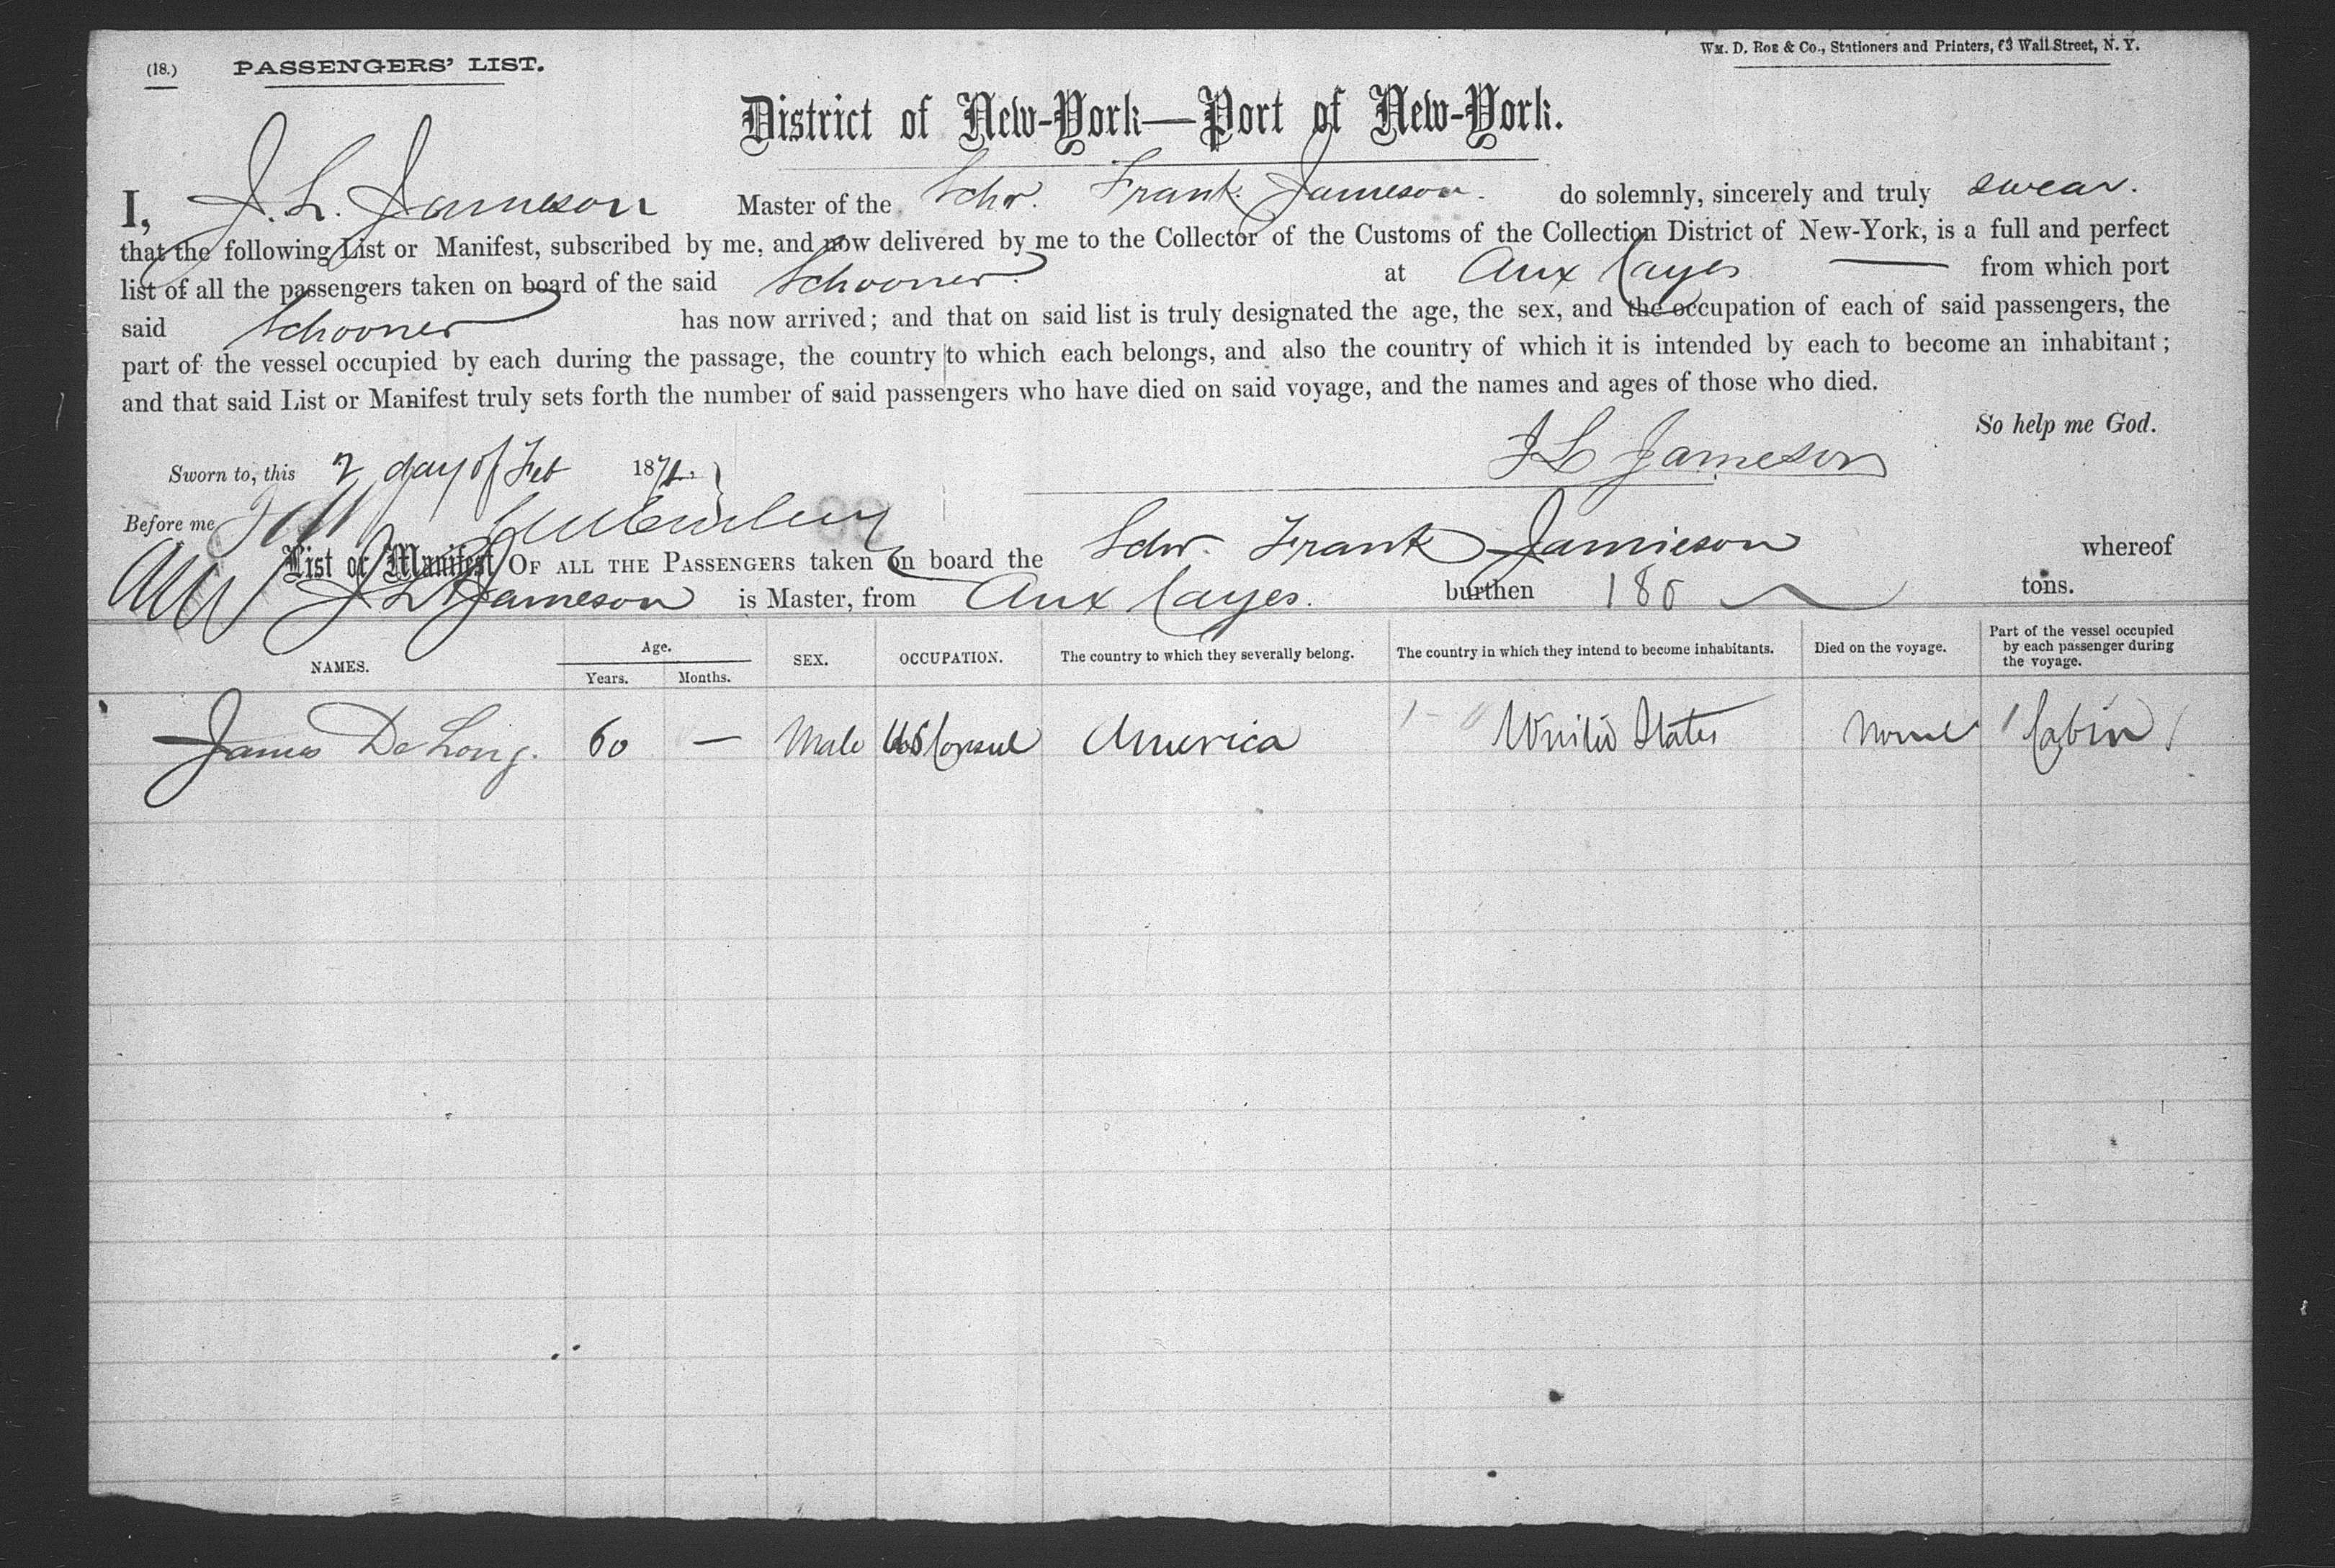 (18.) PASSENGERS' LIST.
WM. D. ROE & Co., Stationers and Printers, 63 Wall Street, N. Y.
District of New-York—Port of New-York.
I, J. L. Jameson Master of the Schr. Frank Jameson. do solemnly, sincerely and truly swear.
that the following List or Manifest, subscribed by me, and now delivered by me to the Collector of the Customs of the Collection District of New-York, is a full and perfect
list of all the passengers taken on board of the said Schooner. at Aux Cayes — from which port
said Schooner has now arrived; and that on said list is truly designated the age, the sex, and the occupation of each of said passengers, the
part of the vessel occupied by each during the passage, the country to which each belongs, and also the country of which it is intended by each to become an inhabitant;
and that said List or Manifest truly sets forth the number of said passengers who have died on said voyage, and the names and ages of those who died.
So help me God.
J L Jameson
Sworn to, this 2 day of Feb 187
Before me
List or Manifest OF ALL THE PASSENGERS taken on board the Schr. Frank Jamieson whereof
J L Jameson is Master, from Aux Cayes. burthen 180 tons.
NAMES. Age. Years. Months. SEX. OCCUPATION. The country to which they severally belong. The country in which they intend to become inhabitants. Died on the voyage. Part of the vessel occupied by each passenger during the voyage.
James De Long. 60 — Male US Consul America United States None Cabin